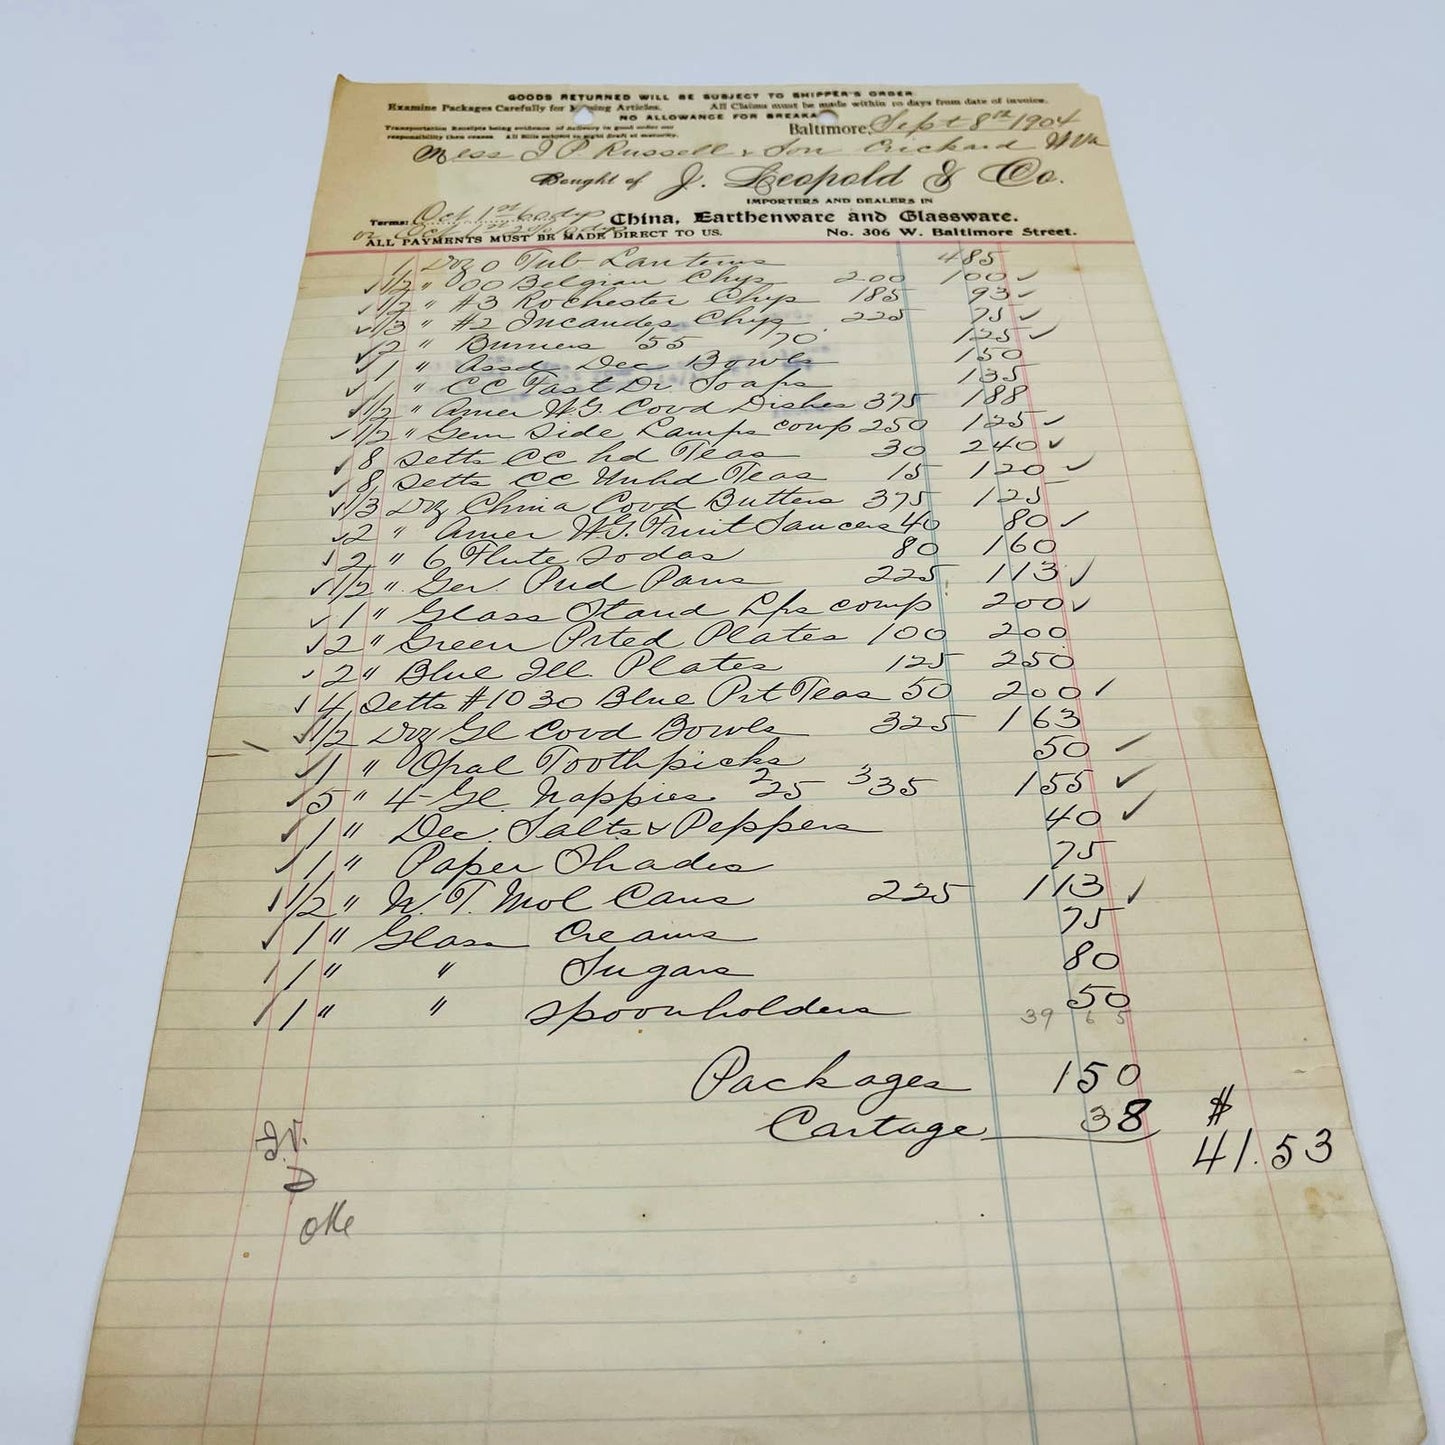 GOODS RETURNED WILL BE SUBJECT TO SHIPPER'S ORDER
Examine Packages Carefully for Missing Articles. All Claims must be made within 10 days from date of invoice.
NO ALLOWANCE FOR BREAKA
Transportation Receipts being evidence of delivery in good order our
responsibility then ceases All Bills subject to sight draft at maturity.
Baltimore, Sept 8th 1904
Mess J P. Russell & Son Orickard W Va
Bought of J. Leopold & Co.
IMPORTERS AND DEALERS IN
Terms: Oct 1st 60 dys China, Earthenware and Glassware.
or Oct
ALL PAYMENTS MUST BE MADE DIRECT TO US. No. 306 W. Baltimore Street.
1 Doz 0 Tub Lanterns 485
1/2 " 00 Belgian Chys 200 100
1/2 " #3 Rochester Chys 185 93
1/3 " #2 Incandes Chys 225 75
2 " Burners 55 70 125
1 " Assd Dec Bowls 150
1 " CC Fast Dr. Soaps 135
1/2 " Amer W.G. Covd Dishes 375 188
1/2 " Gem Side Lamps comp 250 125
8 Setts CC hd Teas 30 240
8 Setts CC Unhd Teas 15 120
1/3 Doz China Covd Butters 375 125
2 " Amer W.G. Fruit Saucers 40 80
2 " 6 Flute Sodas 80 160
1/2 " Ger. Pud Pans 225 113
1 " Glass Stand Lps comp 200
2 " Green Prted Plates 100 200
2 " Blue Ill Plates 125 250
4 Setts #1030 Blue Prt Teas 50 200
1/2 Doz Gl Covd Bowls 325 163
1 " Opal Toothpicks 50
5 " 4 Gl. Nappies 2/25 3/35 155
1 " Dec. Salts & Peppers 40
1 " Paper Shades 75
1/2 " N. T. Mol Cans 225 113
1 " Glass Creams 75
1 " " Sugars 80
1 " " Spoonholders 50
39 65
Packages 150
Cartage 38 $
41.53